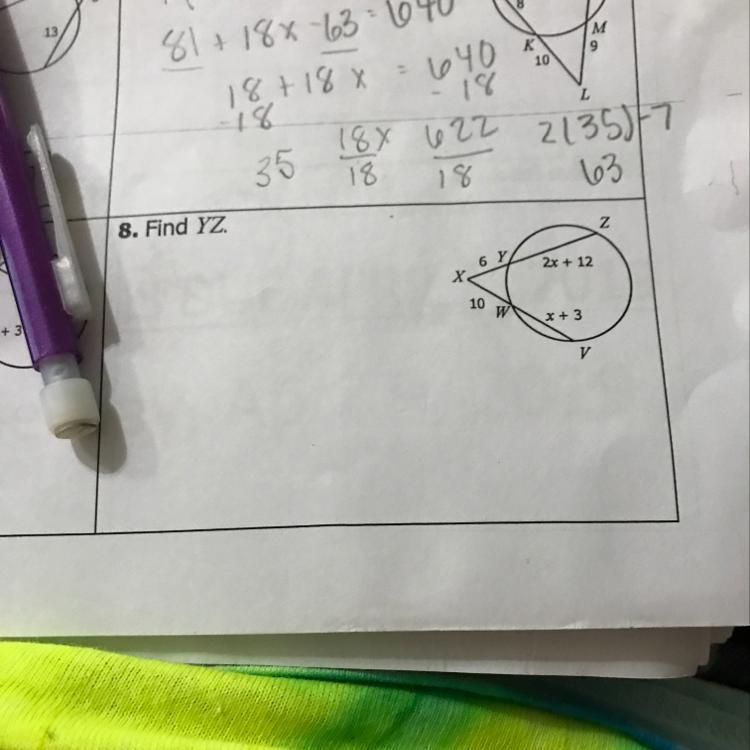 13
81 + 18x - 63 = 640
18 + 18x = 640
-18 - 18
35 18x/18 622/18 2(35)-7
63
8
K
10
M
9
L
8. Find YZ.
Z
6 Y
2x + 12
X
10 W
x + 3
V
+ 3